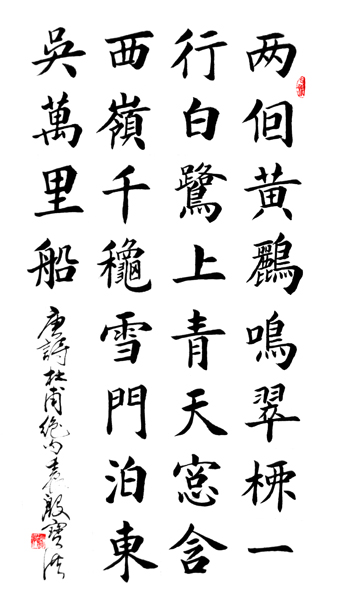 两個黄鸝鳴翠柳一
行白鷺上青天窓含
西嶺千龝雪門泊東
吳萬里船
唐詩杜甫絶句